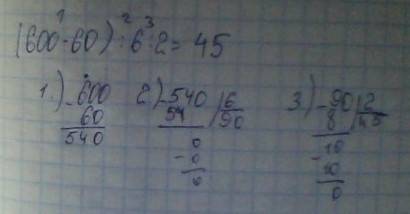 1 2 3
(600-60):6:2=45
1.) -600 2.) -540 |6 3.) -90 |2
60 54 |90 8 |45
540 0 10
-0 -10
0 0